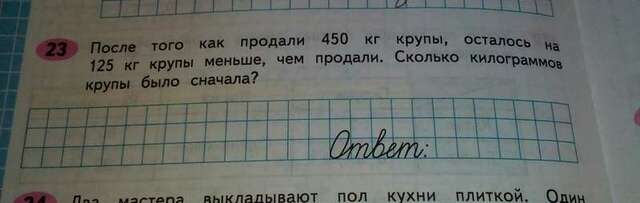 23 После того как продали 450 кг крупы, осталось на
125 кг крупы меньше, чем продали. Сколько килограммов
крупы было сначала?
Ответ:
24 Два мастера выкладывают пол кухни плиткой. Один